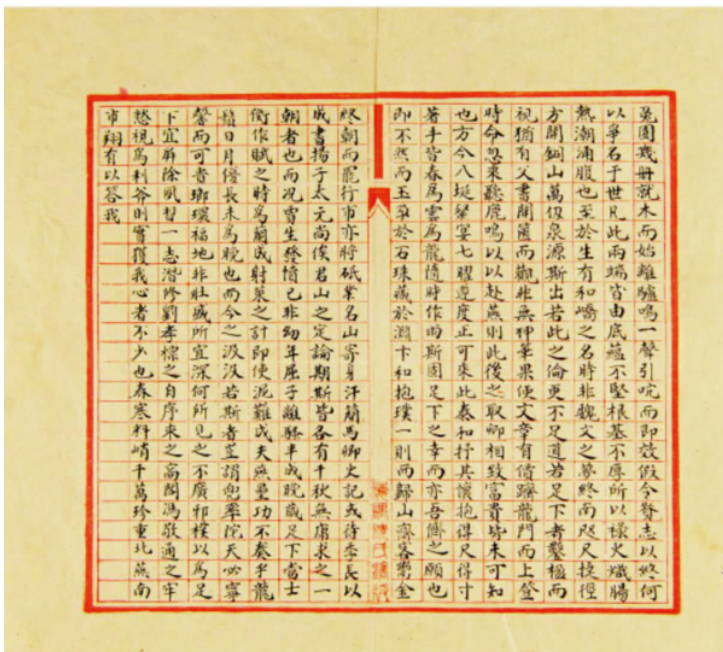 兔園幾冊就未而始離驢鳴一聲引吭而即效假令脊志以終何
以爭名于世凡此兩端皆由底蘊不堅根基不厚所以祿火熾腸
熱潮涌腹也至於生有和嶠之名時非魏文之夢終南咫尺捷徑
方開銅山萬仞泉源斯出若此之倫更不足道若足下者擊楫而
視猶有父書開篋而觀非無神筆果使文章有價躋龍門而上登
時命忽來聽鹿鳴以赴燕則此後之取卿相致富貴皆未可知
也方今八埏肇宴七曜遵度正可乘此泰和抒其懷抱得尺得寸
著手皆春為雲為龍隨時作雨斯固足下之幸而亦吾儕之願也
即不然而玉在於石珠藏於淵卞和抱璞一刖而歸山齋客鬻金
終朝而罷行市亦將砥業名山寄身汗簡馬卿史記或待季長以
成書揚子太元尚俟君山之定論期斯皆各有千秋無庸求之一
朝者也而况賈生發憤已非幼年屈子離騷半成晚歲足下當士
衡作賦之時為蘭成射策之計即使泥難成天無量功不奏乎龍
髯日月優長未為晚也而今之汲汲若斯者豈謂兜率陀天必寧
馨而可香瑯環福地非壯歲所宜深何所見之不廣邪樸以為足
下宜屏除夙習一志潛修劉孝標之自序束之高閣馮敬通之牢
愁視為利斧則實獲我心者不少也春寒料峭千萬珍重北燕南
市翔有以答我